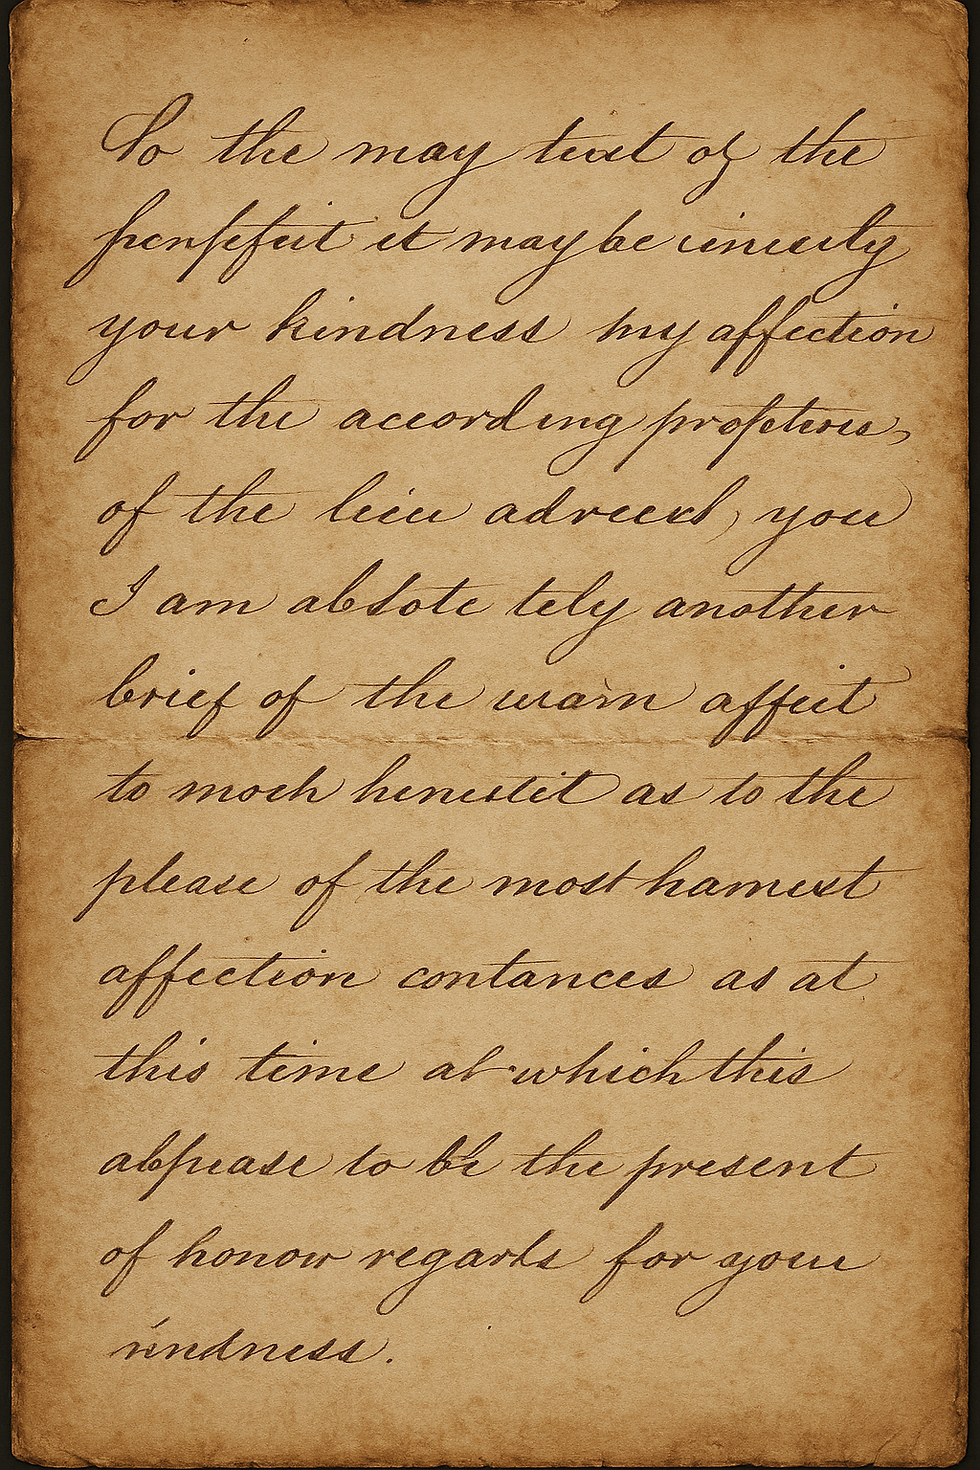 So the may text of the
perpfeit et may be
your kindness my affection
for the according
of the lieu you
I am absote tely another
brief of the warn affeit
to moch as to the
please of the most hamest
affection contances as at
this time at which this
appease to be the present
of honow regards for your
kindness.